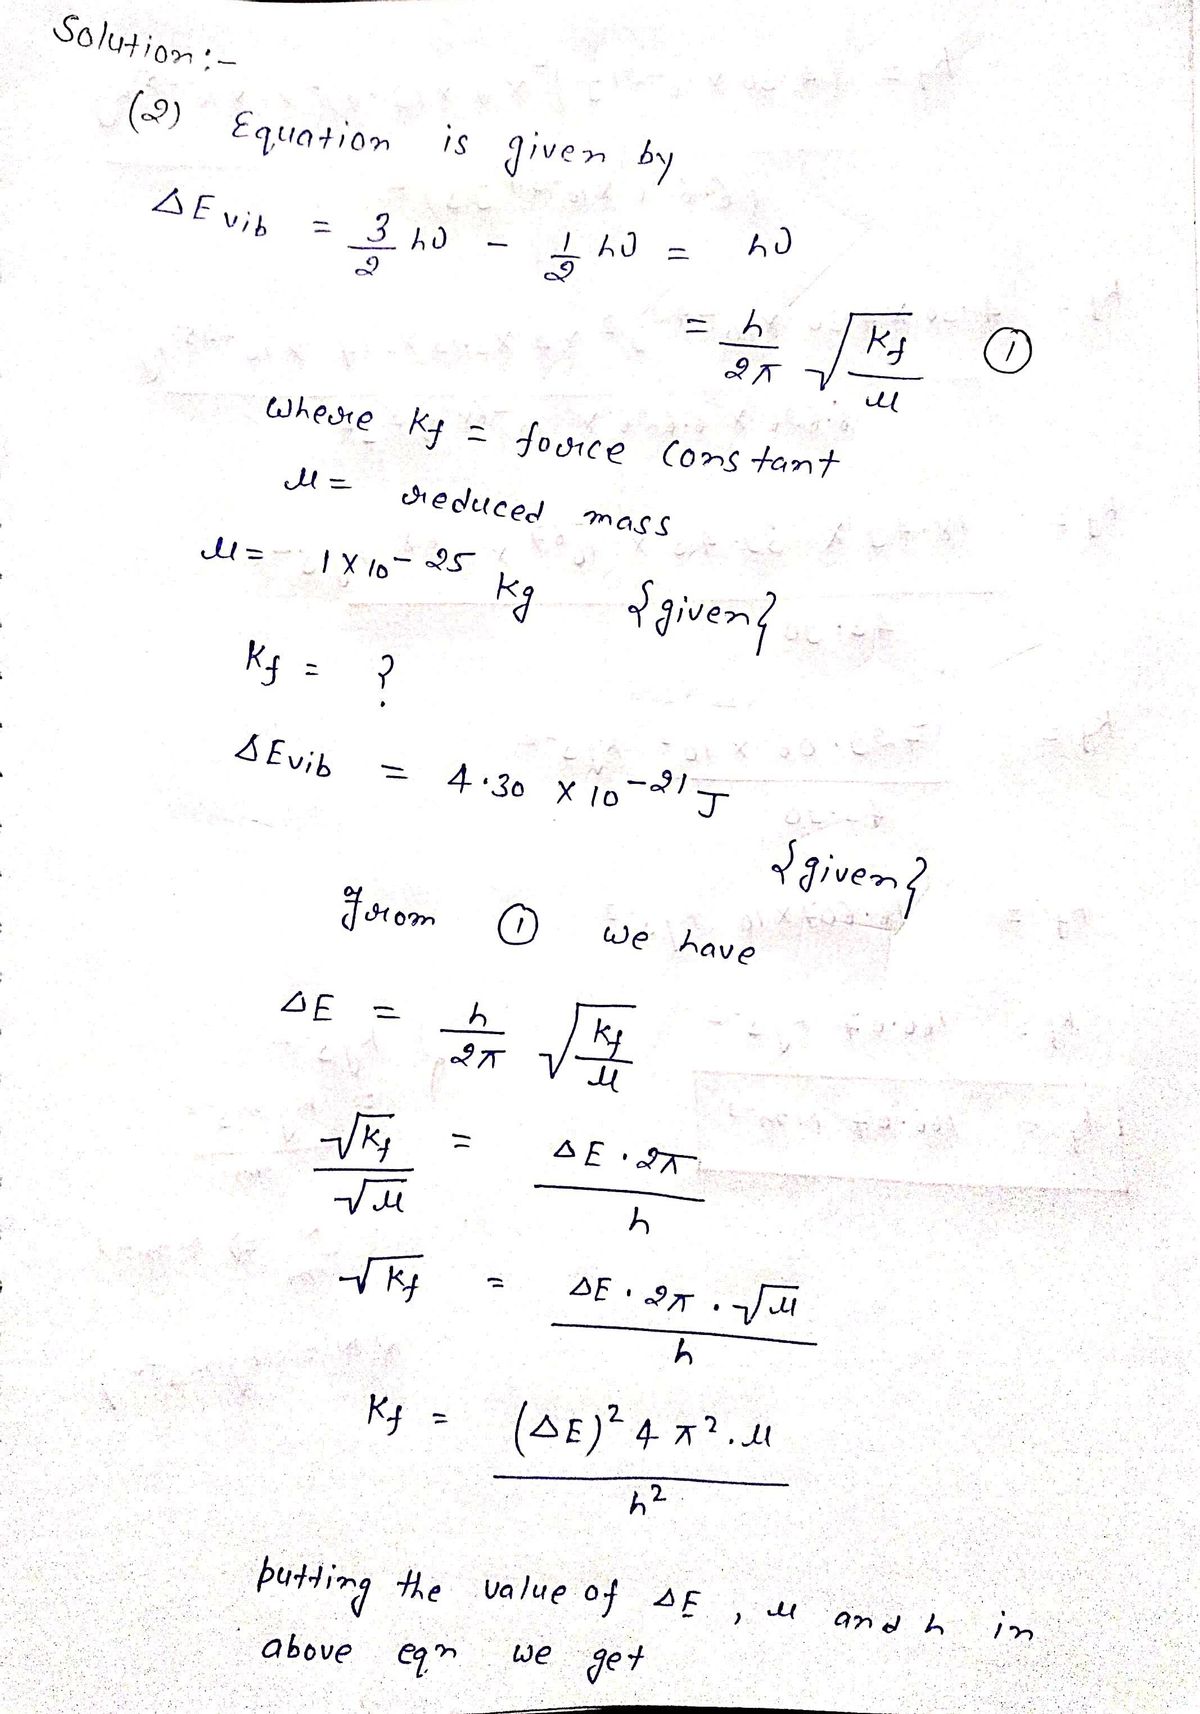 Solution:-
(2) Equation is given by
ΔE vib = 3/2 hυ - 1/2 hυ = hυ
= h/2π √(Kf/μ) ①
where Kf = force constant
μ = reduced mass
μ = 1 X 10-25 Kg {given}
Kf = ?
ΔEvib = 4.30 X 10-21 J
{given}
From ① we have
ΔE = h/2π √(Kf/μ)
√Kf/√μ = ΔE · 2π/h
√Kf = ΔE · 2π · √μ/h
Kf = (ΔE)² 4 π² . μ/h²
putting the value of ΔE , μ and h in
above eqn we get